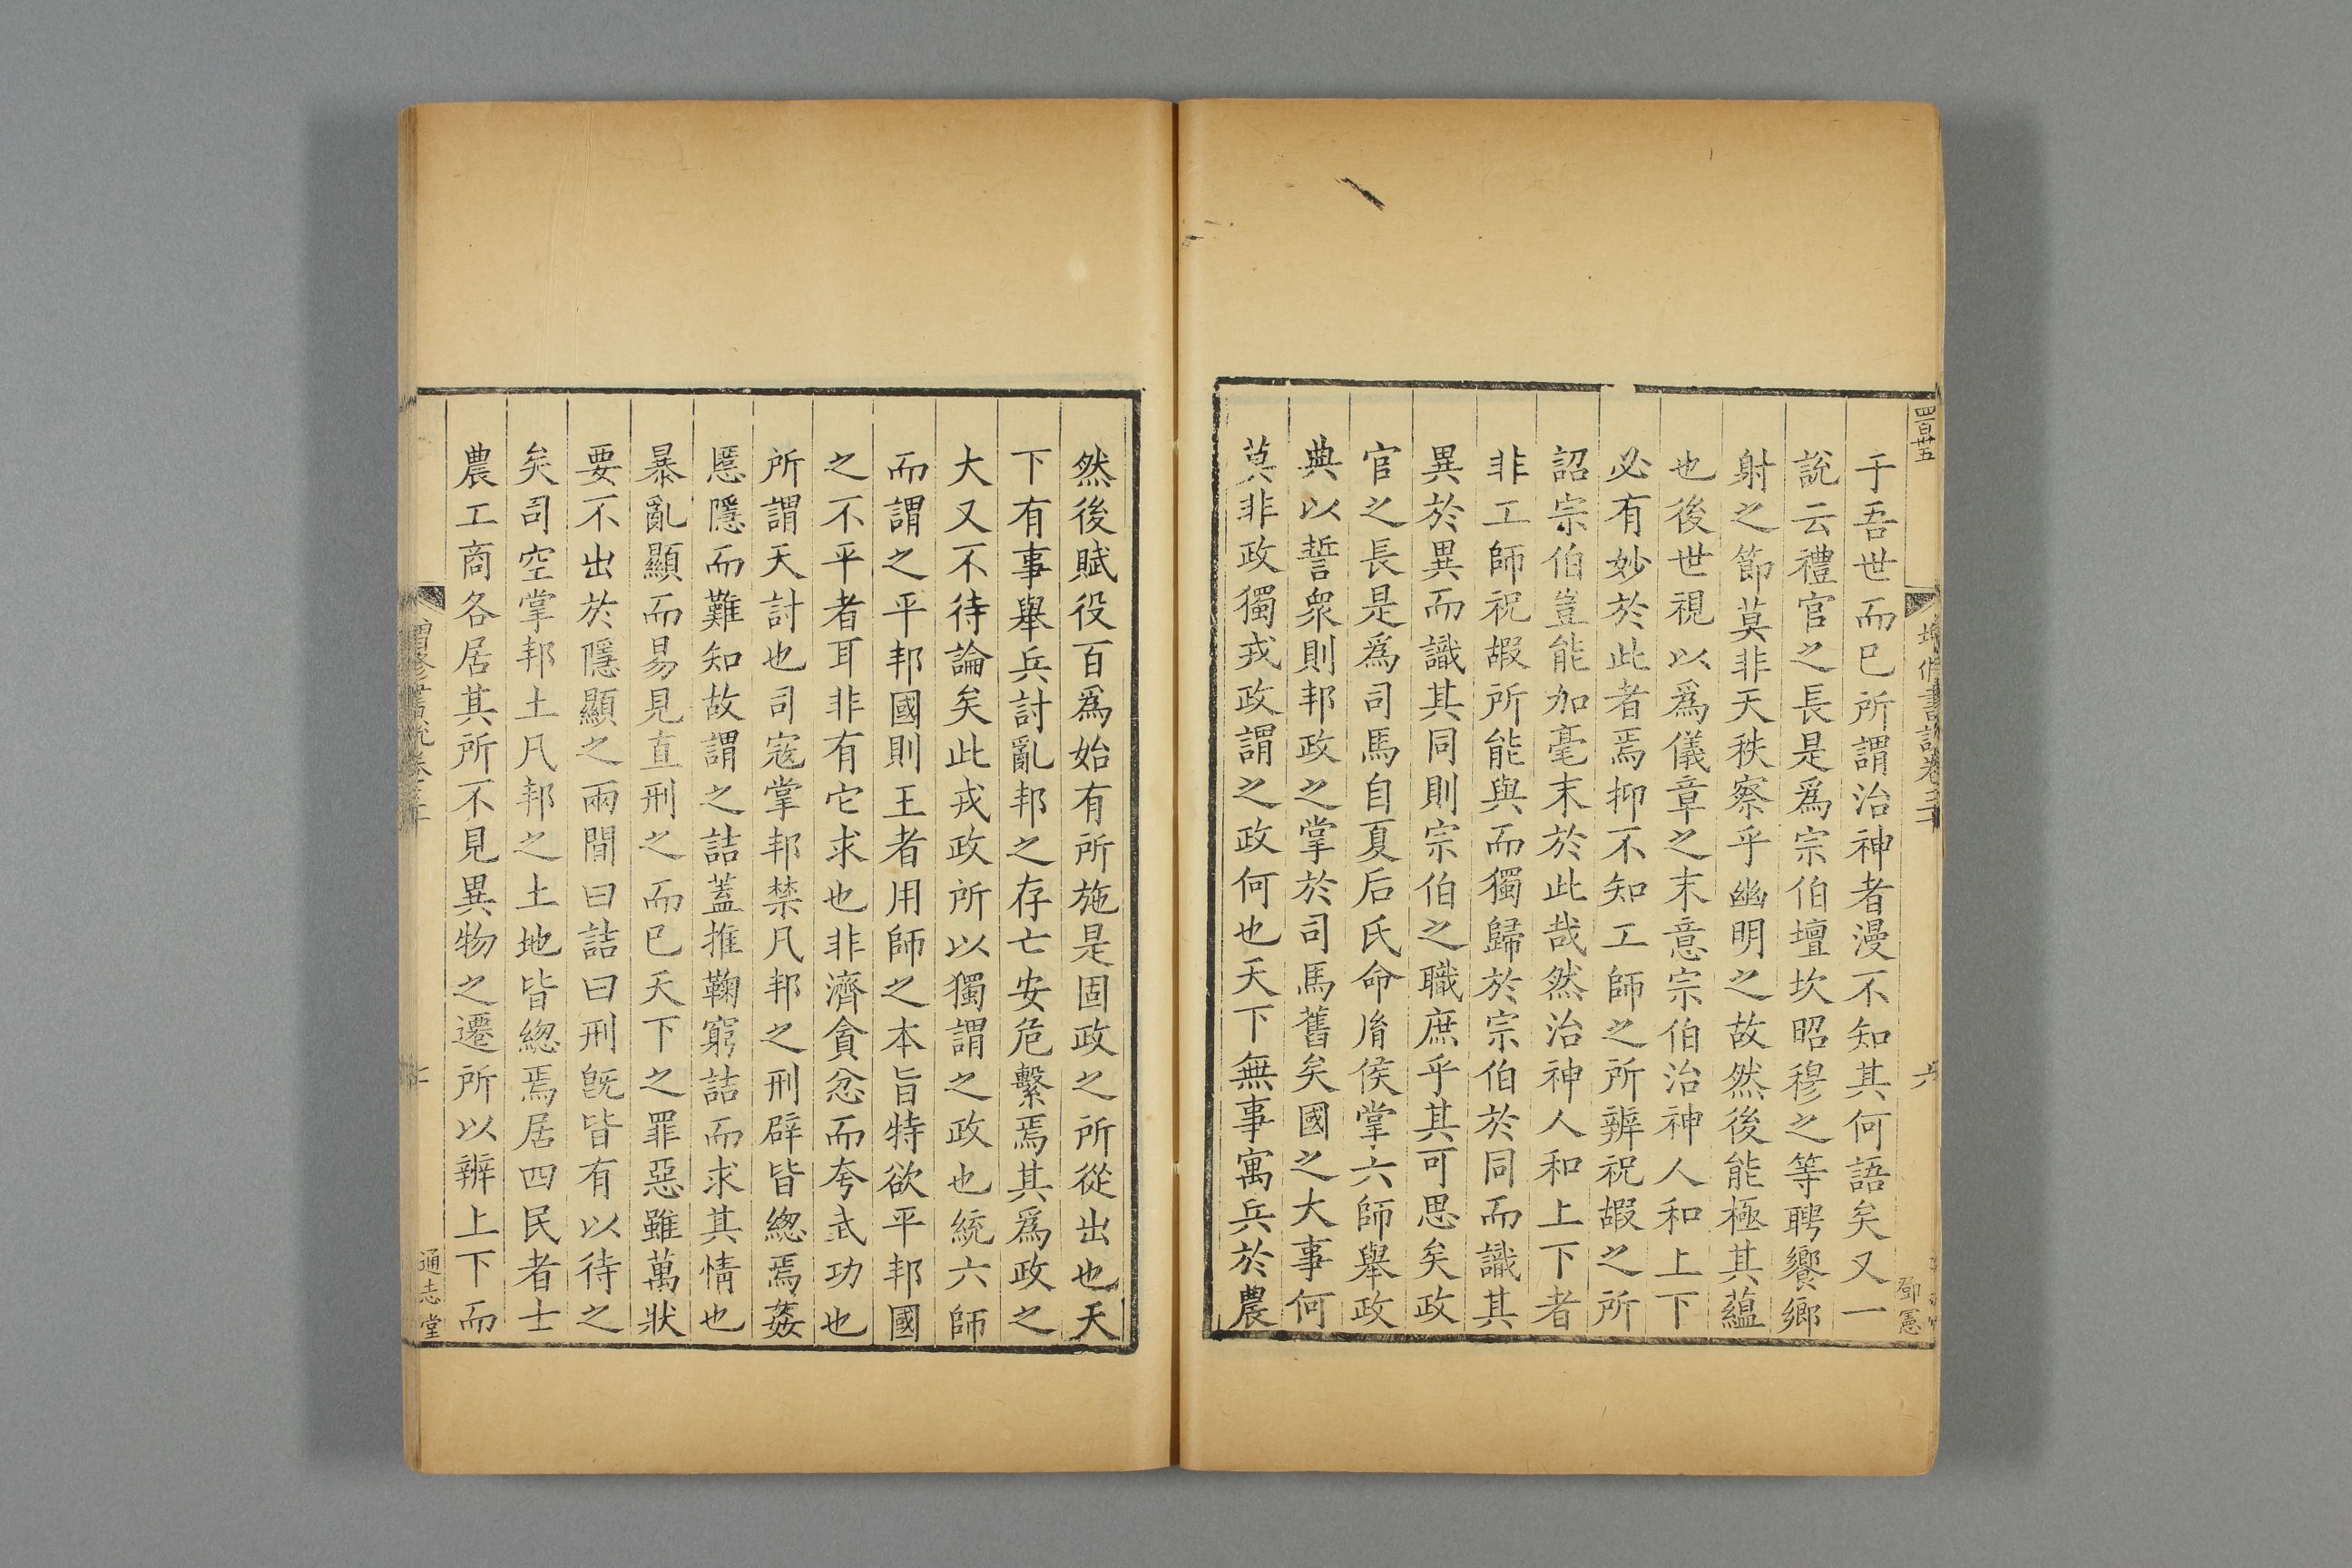 四百廿五
于吾世而已所謂治神者漫不知其何語矣又一
說云禮官之長是爲宗伯壇坎昭穆之等聘饗鄉
射之節莫非天秩察乎幽明之故然後能極其蘊
也後世視以爲儀章之末意宗伯治神人和上下
必有妙於此者焉抑不知工師之所辨祝嘏之所
詔宗伯豈能加毫末於此哉然治神人和上下者
非工師祝嘏所能與而獨歸於宗伯於同而識其
異於異而識其同則宗伯之職庶乎其可思矣政
官之長是爲司馬自夏后氏命胤侯掌六師舉政
典以誓衆則邦政之掌於司馬舊矣國之大事何
莫非政獨戎政謂之政何也天下無事寓兵於農
然後賦役百爲始有所施是固政之所從出也天
下有事舉兵討亂邦之存亡安危繫焉其爲政之
大又不待論矣此戎政所以獨謂之政也統六師
而謂之平邦國則王者用師之本旨特欲平邦國
之不平者耳非有它求也非濟貪忿而夸武功也
所謂天討也司寇掌邦禁凡邦之刑辟皆緫焉姦
慝隱而難知故謂之詰蓋推鞠窮詰而求其情也
暴亂顯而易見直刑之而已天下之罪惡雖萬狀
要不出於隱顯之兩間曰詰曰刑旣皆有以待之
矣司空掌邦土凡邦之土地皆緫焉居四民者士
農工商各居其所不見異物之遷所以辨上下而
增修書說卷三十
通志堂